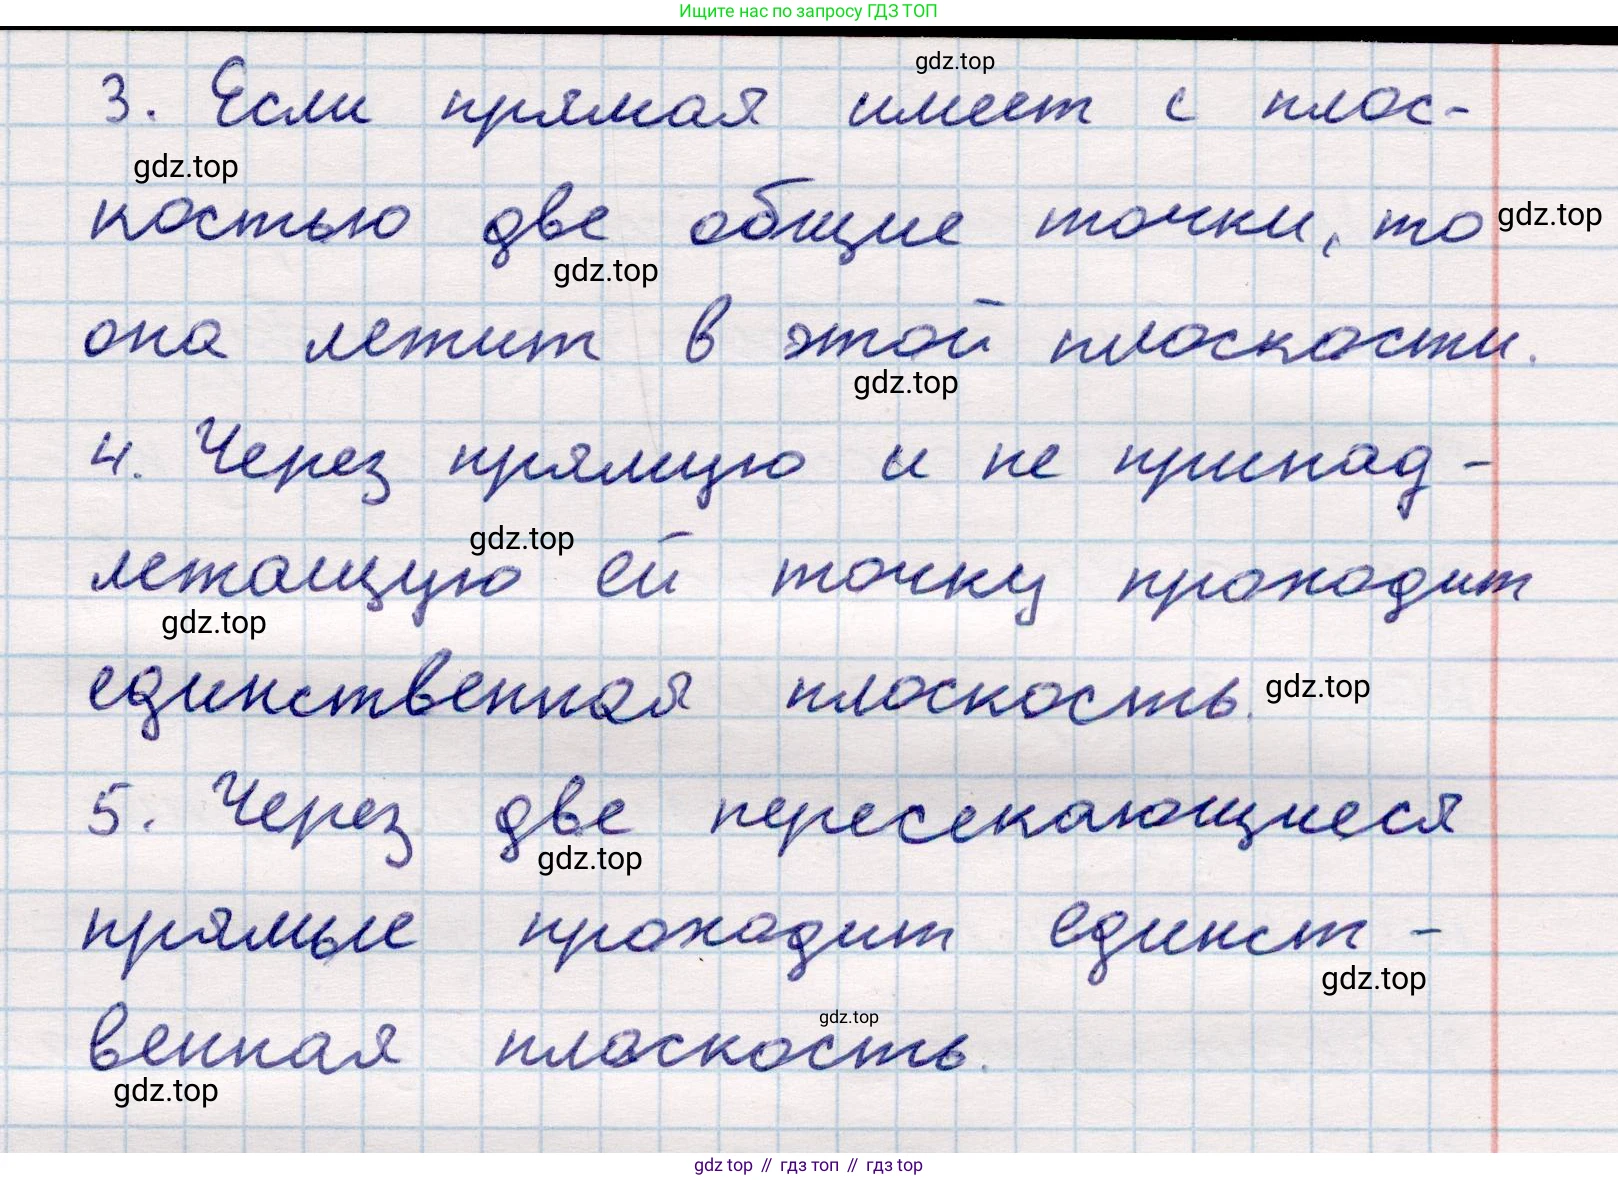 Ищите нас по запросу ГДЗ ТОП
gdz.top
3. Если прямая имеет с плос-
gdz.top
костью две общие точки, то
gdz.top
gdz.top
она лежит в этой плоскости.
gdz.top
4. Через прямую и не принад-
gdz.top
лежащую ей точку проходит
gdz.top
единственная плоскость.
gdz.top
5. Через две пересекающиеся
gdz.top
прямые проходит единст-
gdz.top
gdz.top
венная плоскость.
gdz.top
gdz top // гдз топ // гдз top